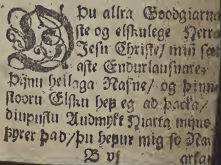 Þu allra Goodgiarn
ste og elskulege Herra
Jesu Christe / min sæt
aste Endurlausnare /
Þijnu heilaga Nafne / og þinne
stoorn Elsku hef eg ad þacka /
diupustu Audmykt Hiarta mijns
fyrer Þad / Þu hefur mig so Naa
B vj